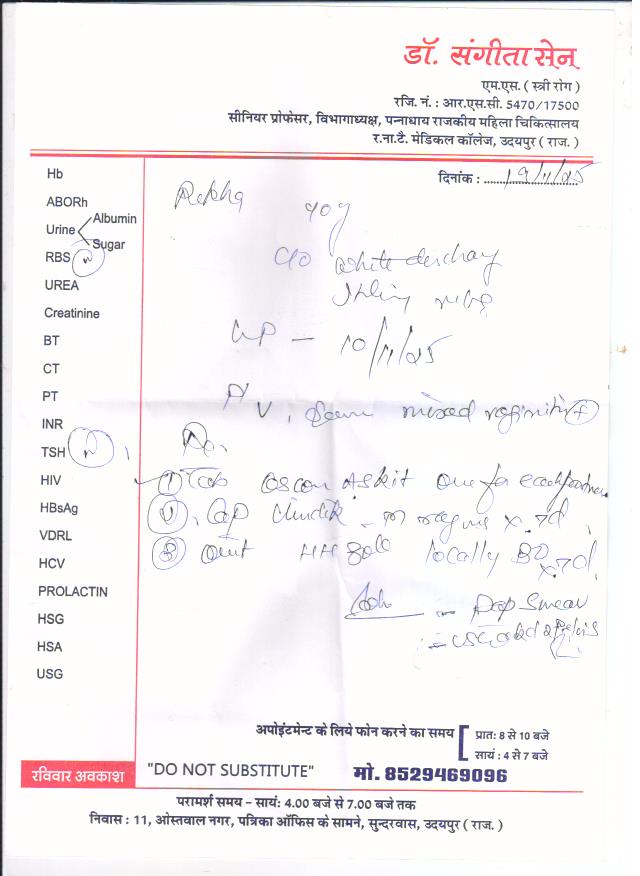 डॉ. संगीता सेन
एम.एस. ( स्त्री रोग )
रजि. नं. : आर.एस.सी. 5470/17500
सीनियर प्रोफेसर, विभागाध्यक्ष, पन्नाधाय राजकीय महिला चिकित्सालय
र.ना.टै. मेडिकल कॉलेज, उदयपुर ( राज. )
दिनांक : 19/11/25
Hb
ABORh
Urine Albumin
Sugar
RBS N
UREA
Creatinine
BT
CT
PT
INR
TSH N
HIV
HBsAg
VDRL
HCV
PROLACTIN
HSG
HSA
USG
Rekha 40y
c/o white
LMP - 10/11/25
P/V mixed vaginitis +
① Tab kit one for each partner
② Cap Clindik x 7d
③ Oint HH locally BD x 7d
Adv - Pap smear
अपोइंटमेन्ट के लिये फोन करने का समय [ प्रात: 8 से 10 बजे
सायं : 4 से 7 बजे
रविवार अवकाश
"DO NOT SUBSTITUTE" मो. 8529469096
परामर्श समय – सायं: 4.00 बजे से 7.00 बजे तक
निवास : 11, ओस्तवाल नगर, पत्रिका ऑफिस के सामने, सुन्दरवास, उदयपुर ( राज. )